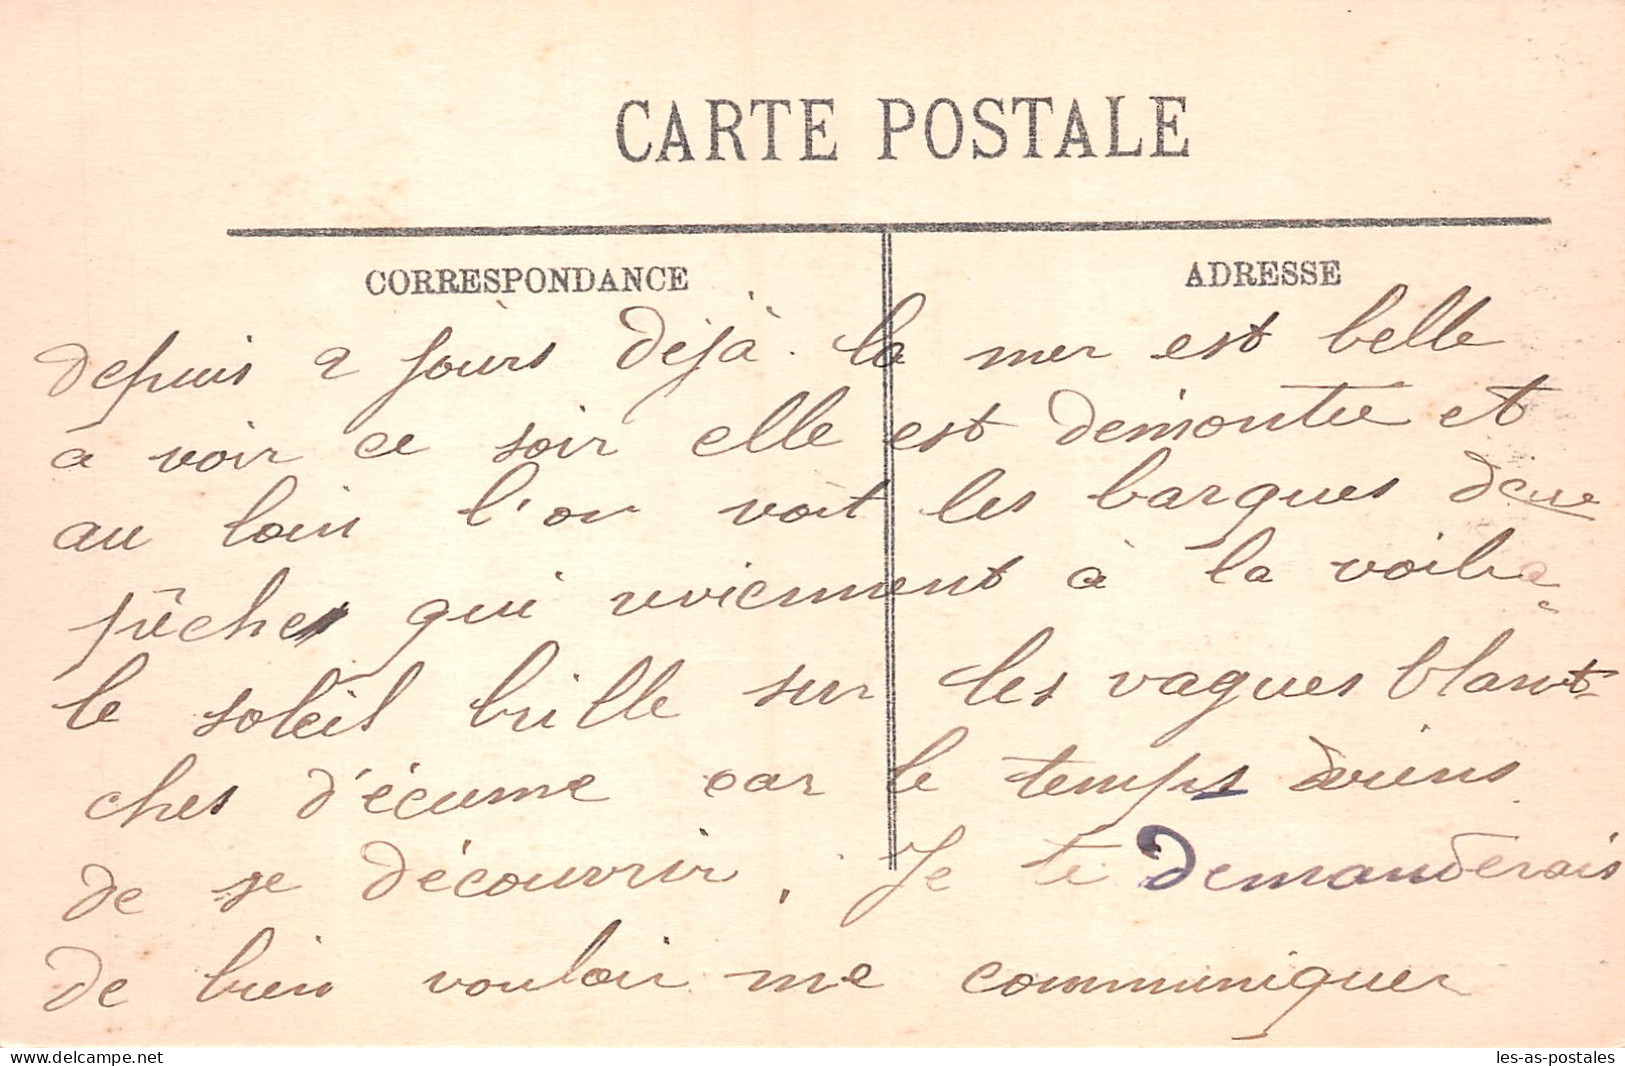 CARTE POSTALE
CORRESPONDANCE
ADRESSE
depuis 2 jours déjà. la mer est belle
a voir ce soir elle est démontée et
au loin l'on voit les barques de
pêches qui reviennent à la voile
le soleil brille sur les vagues blan
ches d'écume car le temps viens
de se découvrir. Je te demanderais
de bien vouloir me communiquer
delcampe.net
les-as-postales